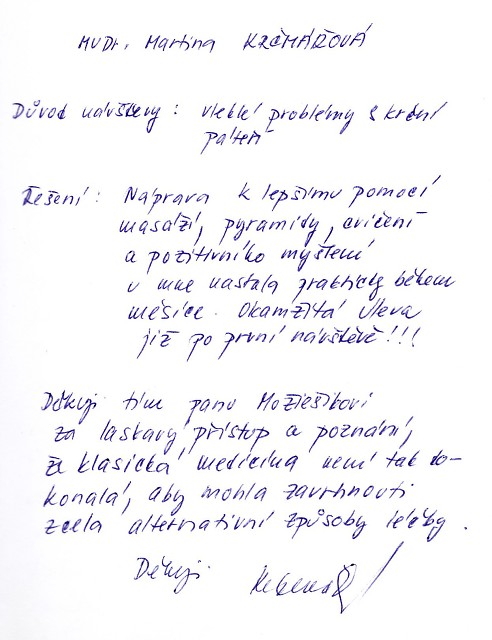 MUDr. Martina KRČMÁŘOVÁ
Důvod návštěvy : vleklé problémy s krční
páteří
Řešení : Náprava k lepšímu pomocí
masáží, pyramidy, cvičení
a pozitivního myšlení
u mne nastala prakticky během
měsíce. Okamžitá úleva
již po první návštěvě!!!
Děkuji tímto panu
za laskavý přístup a poznání,
že klasická medicína není tak do-
konalá, aby mohla zavrhnouti
zcela alternativní způsoby léčby.
Děkuji